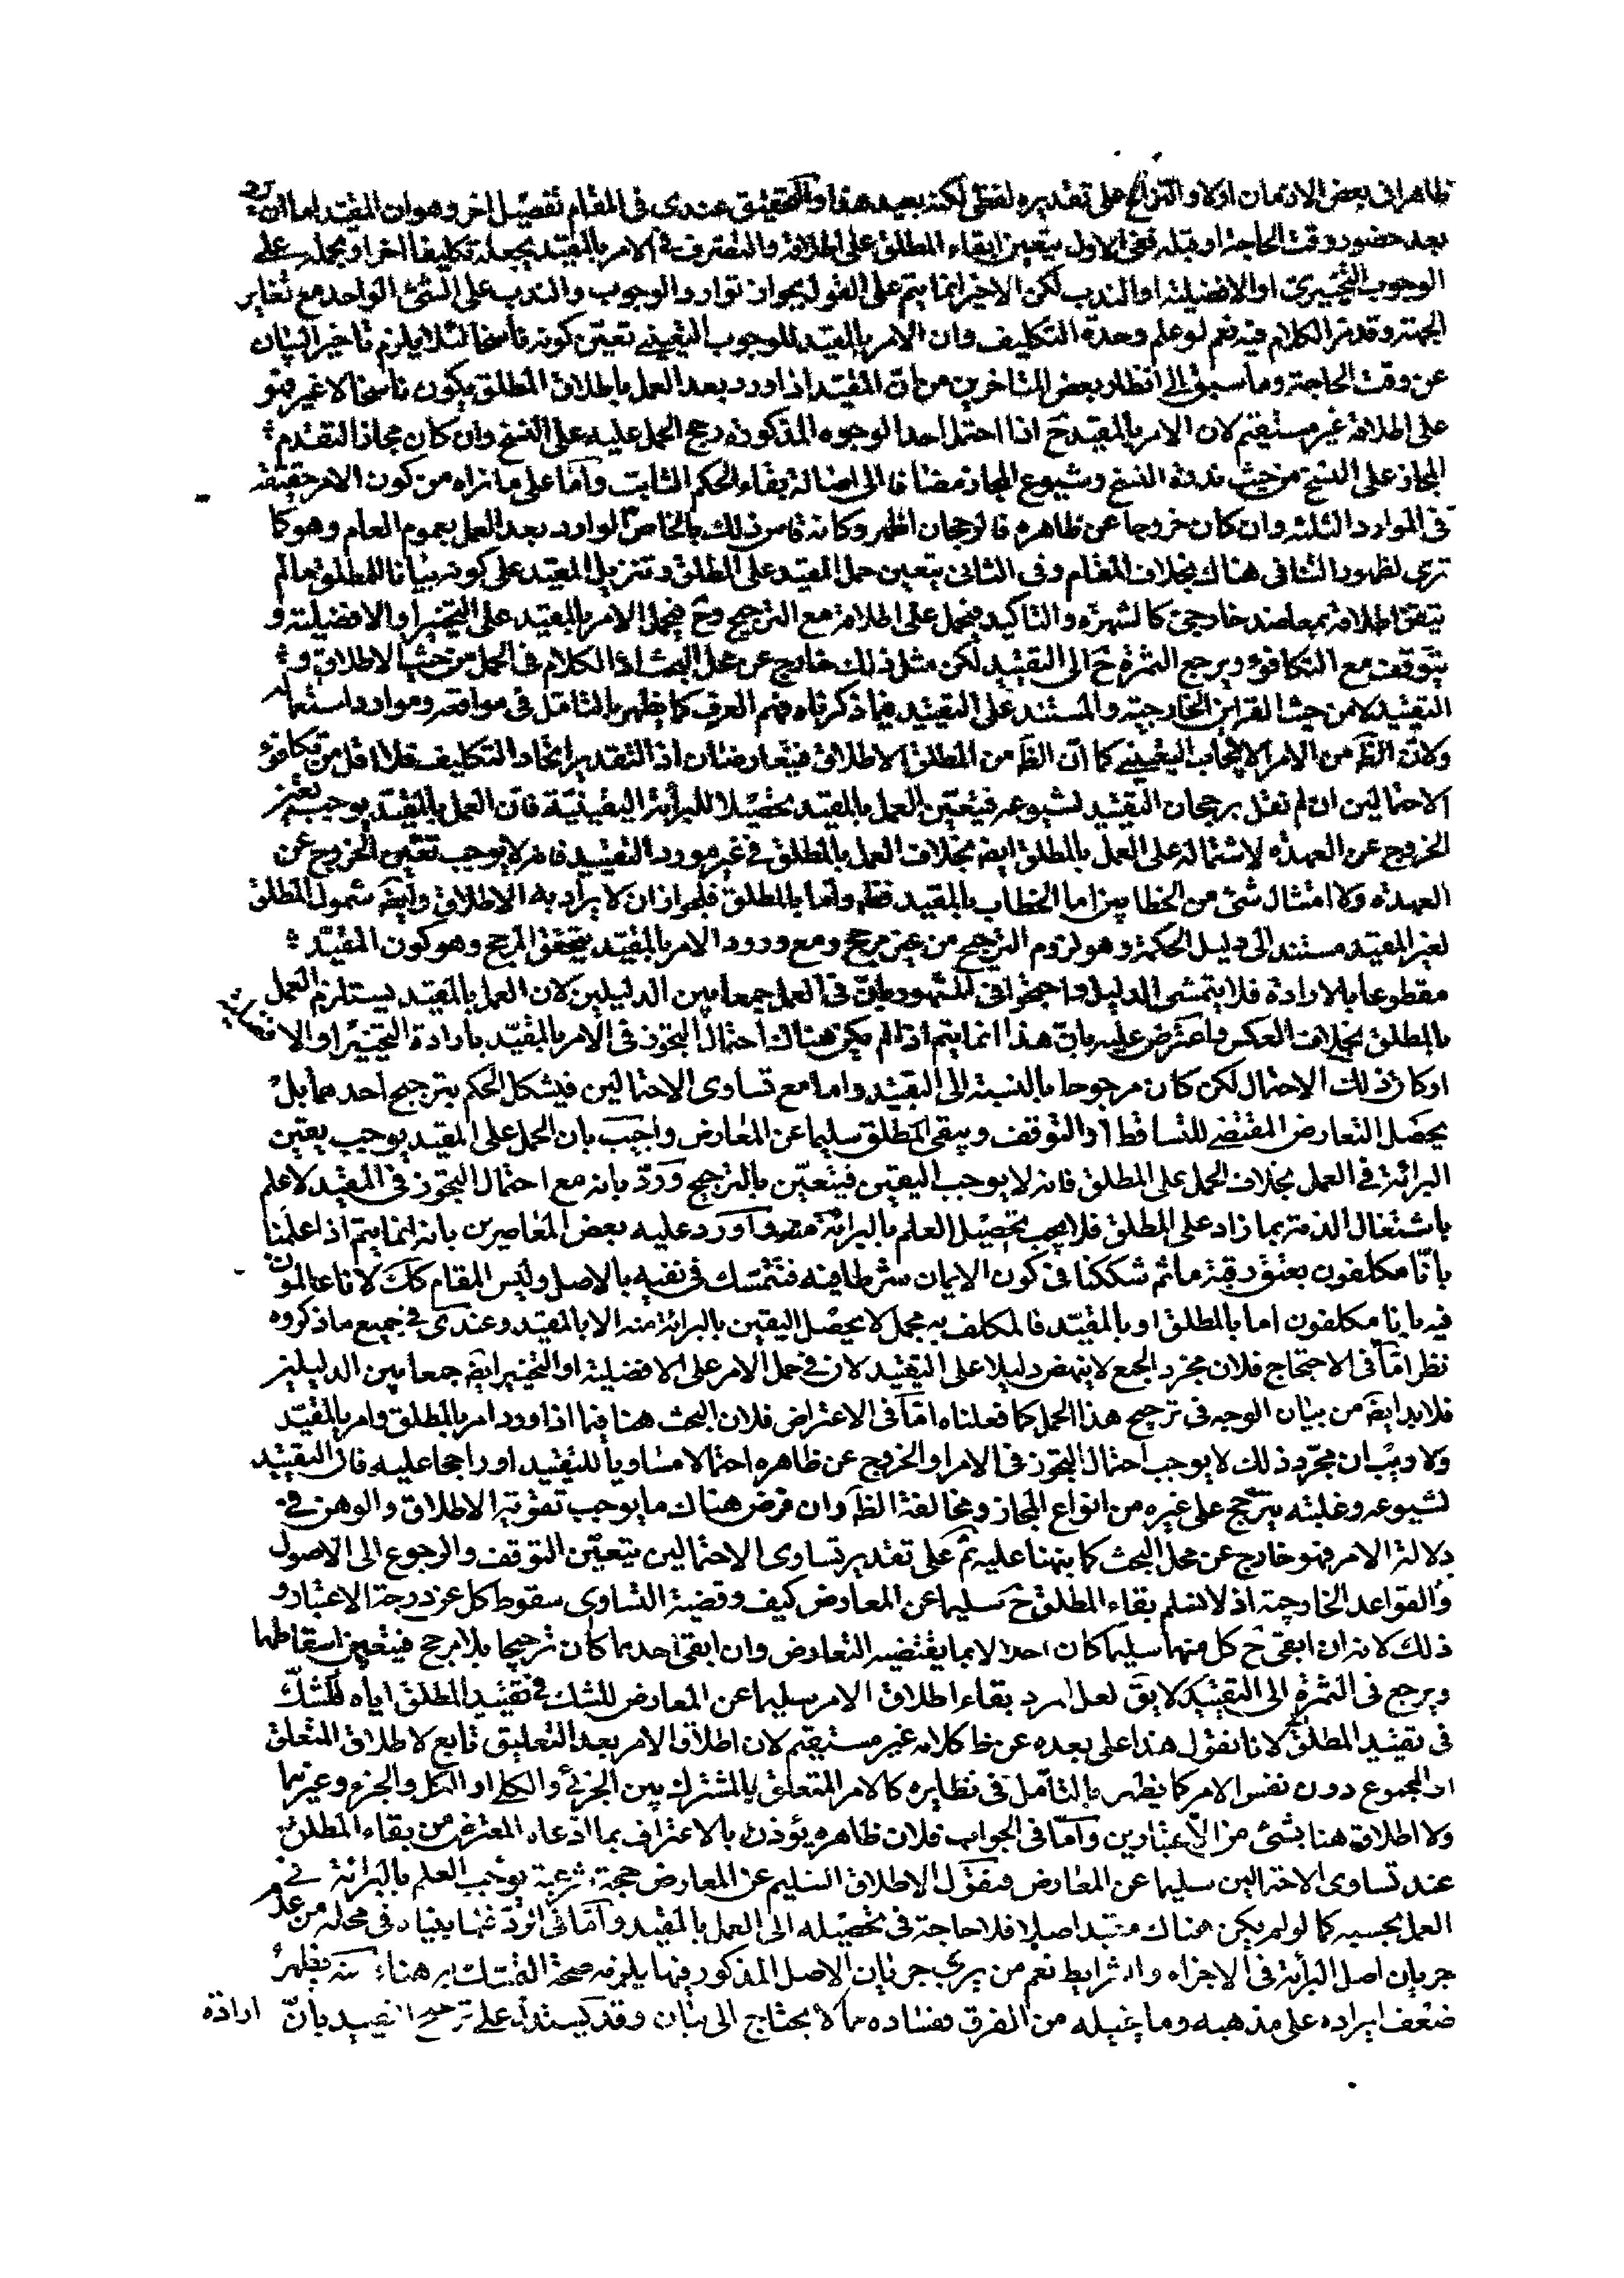 ظاهرا فى بعض الازمان اولا والنزاع على تقديره لفظى لكنه بعيد هذا والتحقيق عندى فى المقام تفصيل اخر وهو ان المقيد اما ان يرد
بعد حضور وقت الحاجة او قبله فعلى الاول يتعين ابقاء المطلق على اطلاقه والتصرف فى الامر بالمقيد بجعله تكليفا اخر او بحمله على
الوجوب التخييرى او الافضلية او الندب لكن الاخير انما يتم على القول بجواز توارد الوجوب والندب على الشئ الواحد مع تغاير
الجهة وقد مر الكلام فيه نعم لو علم وحدة التكليف وان الامر بالمقيد للوجوب التعيينى تعين كونه ناسخا لئلا يلزم تاخير البيان
عن وقت الحاجة وما سبق الى انظار بعض المتاخرين من ان المقيد اذا ورد بعد العمل باطلاق المطلق يكون ناسخا لا غير فهو
على اطلاقه غير مستقيم لان الامر بالمقيد ح اذا احتمل احد الوجوه المذكورة رجح الحمل عليه على النسخ وان كان مجازا لتقدم
المجاز على النسخ من حيث ندرة النسخ وشيوع المجاز مضافا الى اصالة بقاء الحكم الثابت واما على ما نراه من كون الامر حقيقة
فى الموارد الثلثة وان كان خروجا عن ظاهره فالرجحان اظهر وكانه قاس ذلك بالخاص الوارد بعد العمل بعموم العام وهو كما
ترى لظهور التنافى هناك بخلاف المقام وفى الثانى يتعين حمل المقيد على المطلق وتنزيل المقيد على كونه بيانا للمطلق ما لم
يتفق اطلاقه بمعاضد خارجى كالشهرة والتاكيد فيحمل على اطلاقه مع الترجيح وح فيحمل الامر بالمقيد على التخيير او الافضلية و
يتوقف مع التكافؤ ويرجع الثمرة ح الى التقييد لكن مثل ذلك خارج عن محل البحث اذ الكلام فى الحمل من حيث الاطلاق و
التقييد لا من حيث القراين الخارجية والمستند على التقييد فيما ذكرناه فهم العرف كما يظهر بالتامل فى مواقعه وموارد استعماله
ولان الظ من الامر الايجاب التعيينى كما ان الظ من المطلق الاطلاق فيتعارضان اذ التقدير اتحاد التكليف فلا اقل من تكافؤ
الاحتمالين ان لم نقل برجحان التقييد لشيوعه فيتعين العمل بالمقيد تحصيلا للبرائة اليقينية فان العمل بالمقيد يوجب يقين
الخروج عن العهدة لاشتماله على العمل بالمطلق ايضا بخلاف العمل بالمطلق فى غير مورد التقييد فانه لا يوجب تعين الخروج عن
العهدة ولا امتثال شئ من الخطابين اما الخطاب بالمقيد فظ واما بالمطلق فلجواز ان لا يراد به الاطلاق وايضا شمول المطلق
لغير المقيد مستند الى دليل الحكمة وهو لزوم الترجيح من غير مرجح ومع ورود الامر بالمقيد يتحقق المرجح وهو كون المقيد
مقطوعا بالارادة فلا يتمشى الدليل واحتجوا فى المشهور بان فى العمل جمعا بين الدليلين لان العمل بالمقيد يستلزم العمل
بالمطلق بخلاف العكس واعترض عليه بان هذا انما يتم اذا لم يكن هناك احتمال التجوز فى الامر بالمقيد بارادة التخيير او الافضلية
او كان ذلك الاحتمال لكن كان مرجوحا بالنسبة الى التقييد واما مع تساوى الاحتمالين فيشكل الحكم بترجيح احدهما بل
يحصل التعارض المقتضى للتساقط او التوقف ويبقى المطلق سليما عن المعارض واجيب بان الحمل على المقيد يوجب يقين
البرائة فى العمل بخلاف الحمل على المطلق فانه لا يوجب اليقين فيتعين بالترجيح ورد بانه مع احتمال التجوز فى المقيد لا علم
باشتغال الذمة بما زاد على المطلق فلا يجب تحصيل العلم بالبرائة منه واورد عليه بعض المعاصرين بانه انما يتم اذا علمنا
بانا مكلفون بعتق رقبة ما ثم شككنا فى كون الايمان شرطا فيه فنتمسك فى نفيه بالاصل وليس المقام كك لانا عالمون
فيه بانا مكلفون اما بالمطلق او بالمقيد فالمكلف به مجمل لا يحصل اليقين بالبرائة منه الا بالمقيد وعندى فى جميع ما ذكروه
نظر اما فى الاحتجاج فلان مجرد الجمع لا ينهض دليلا على التقييد لان فى حمل الامر على الافضلية او التخيير ايضا جمعا بين الدليلين
فلا بد ايضا من بيان الوجه فى ترجيح هذا الحمل كما فعلناه اما فى الاعتراض فلان البحث هنا فيما اذا ورد امر بالمطلق وامر بالمقيد
ولا ريب ان مجرد ذلك لا يوجب احتمال التجوز فى الامر او الخروج عن ظاهره احتمالا مساويا للتقييد او راجحا عليه فان التقييد
لشيوعه وغلبته يترجح على غيره من انواع المجاز ومخالفة الظ وان فرض هناك ما يوجب تقوية الاطلاق والوهن فى
دلالة الامر فهو خارج عن محل البحث كما نبهنا عليه ثم على تقدير تساوى الاحتمالين يتعين التوقف والرجوع الى الاصول
والقواعد الخارجية اذ لا نسلم بقاء المطلق ح سليما عن المعارض كيف وقضية التساوى سقوط كل عن درجة الاعتبار و
ذلك لانه ان ابقى ح كل منهما سليما كان اخلالا بما يقتضيه التعارض وان ابقى احدهما كان ترجيحا بلا مرجح فيتعين اسقاطهما
ويرجع فى الثمرة الى التقييد لا يق لعل المراد بقاء اطلاق الامر سليما عن المعارض للشك فى تقييد المطلق اياه للشك
فى تقييد المطلق لانا نقول هذا على بعده عن ظ كلامه غير مستقيم لان اطلاق الامر بعد التعليق تابع لاطلاق المتعلق
او المجموع دون نفس الامر كما يظهر بالتامل فى نظايره كالامر المتعلق بالمشترك بين الجزئى والكلى او الكل والجزء وغيرهما
ولا اطلاق هنا بشئ من الاعتبارين واما فى الجواب فلان ظاهره يؤذن بالاعتراف بما ادعاه المعترض من بقاء المطلق
عند تساوى الاحتمالين سليما عن المعارض فنقول الاطلاق السليم عن المعارض حجة شرعية يوجب العلم بالبرائة فى
العمل بحسبه كما لو لم يكن هناك مقيد اصلا فلا حاجة فى تحصيله الى العمل بالمقيد واما فى الرد فما بيناه فى محله من عدم
جريان اصل البرائة فى الاجزاء والشرايط نعم من يرى جريان الاصل المذكور فيها يلزمه صحة التمسك به هنا يظهر
ضعف ايراده على مذهبه وما تخيله من الفرق ففساده مما لا يحتاج الى بيان وقد يستدل على ترجيح التقييد بان
ارادة